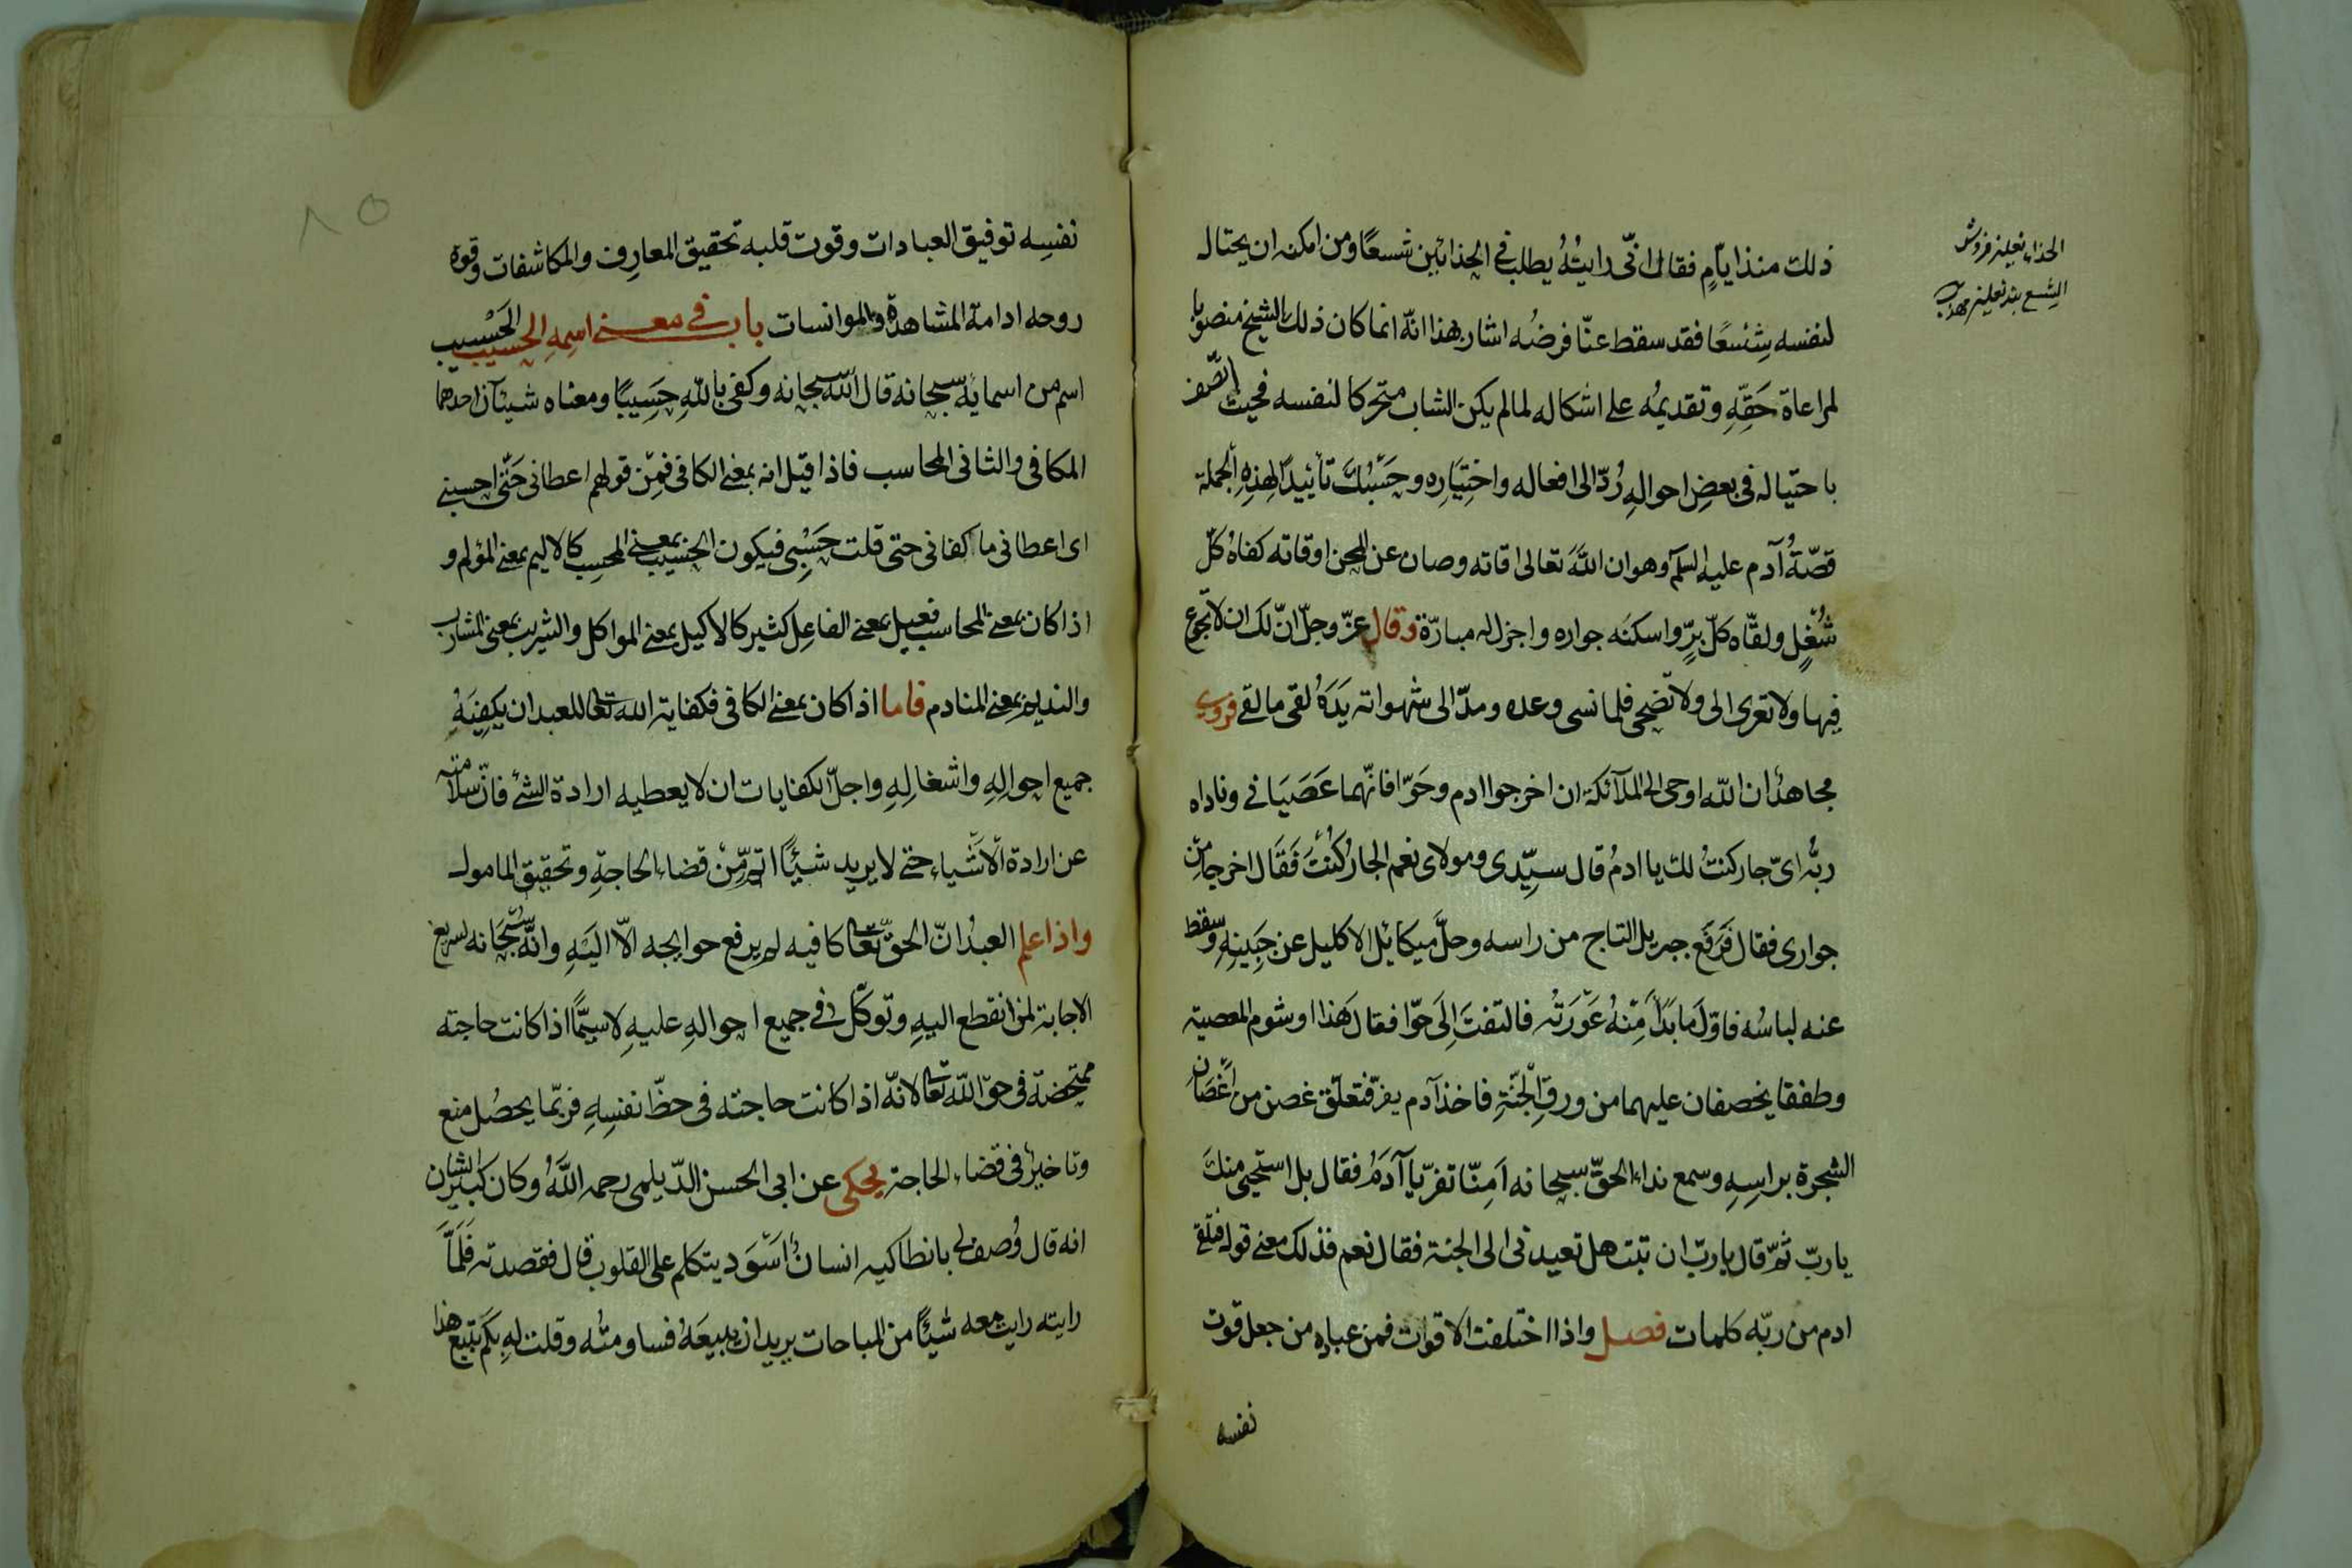 ذلت منذ ايام فقال انّى رايتُهُ يطلب فى الحذائين شسعًا ومن امكنه ان يحتال
لنفسه شِسْعًا فقد سقط عنّا فرضُه اشار بهذا انّه انما كان ذلك الشيخ منصوبا
لمراعاة حَقِّهِ وتقديمُه على اشكاله لما لم يكن الشاب متحركا لنفسه فحيث اتّصف
باحتياله فى بعضِ احوالهِ رُدّ الى افعاله واختِيَارِه وحَسْبُكَ تأييدًا لهذِهِ الجملة
قصّةُ آدم عليه السلم وهو ان اللّه تعالى اقاته وصان عن المحن اوقاته كفاهُ كلّ
شُغْلٍ ولقّاه كلّ بِرٍّ واسكنَه جواره واجزل له مبارّة وقال عزّ وجلّ انّ لك ان لا تجوع
فيها ولا تعرى الى ولا تضحى فلما نسى وعده ومدّ الى شهواته يَدَهُ لقى ما لقى فروى
مجاهدٌ ان اللّه اوحى الى الملآئكة ان اخرجوا ادم وحَوّا فانّهما عَصَيَانى وناداه
ربُّه اىّ جار كنتُ لك يا ادمُ قال سيّدى ومولاى نعم الجارُ كُنْتَ فَقَال اخرجا من
جوارى فقال فَرَفَع جبريل التاج من راسه وحلَّ ميكائيل الاكليل عن جَبِينِهِ وسقط
عنه لباسُه فاوّل مَا بَدَا مِنْهُ عَوْرَتُه فالتفتَ اِلَى حوّا فقال هَذا اوشوم المعصية
وطفقا يخصفان عليهما من ورقِ الْجَنّةِ فاخذ آدم يفرّ فتعلّق غصن من اَغصَان
الشجرة براسِهِ وسمع نداء الحقّ سبحانه اَمِنّا تفرّ يا آدَمُ فقال بل استحيى منكَ
يا ربّ ثمّ قال يا ربّ ان تبت هل تعيدنى الى الجنة فقال نعم فذلك معنى قوله فتلقى
ادم من ربّه كلمات فصل واذا اختلفت الاقوات فمن عباده من جعل قوت
نفسه
الحذاء نعلين فروش
الشسع بند نعلين
نفسِه توفيق العبادات وقوت قلبه تحقيق المعارِف والمكاشفات وقوة
روحه ادامة المشاهدة والموانسات باب فى معنى اسمِهِ الحسيب الحَسْيب
اسم من اسمايه سبحانه قال اللّه سبحانه وكفى باللّهِ حَسِيبًا ومعناه شيئان احدهما
المكافى والثانى المحاسب فاذا قيل انه بمعنى الكافى فمِن قولهم اعطانى حَتّى احسبنى
اى اعطانى ما كفانى حتى قلت حَسْبِى فيكون الحَسِيب بمعنى المحسِب كالاليم بمعنى المؤلم و
اذا كان بمعنى المحاسب فعيل بمعنى الفاعِل كثير كالاكيل بمعنى المواكل والشريب بمعنى المشارب
والنديم بمعنى المنادم فاما اذا كان بمعنى الكافى فكفاية اللّه تعالى للعبد ان يكفِيَهُ
جميع احوالِهِ واشغالِهِ واجلّ الكفايات ان لا يعطيه ارادة الشئ فانّ سلامته
عن ارادة الْاَشْياء حتى لا يريد شيئًا اتمّ مِنْ قضاء الحاجةِ وتحقيق المامول
واذا علم العبدُ انّ الحقّ تعالى كافيه لم يرفع حوايجه الّا اليَهِ وانّه سُبْحَانه لسريع
الاجابة لمن انقطع اليهِ وتوكّل فى جميع احوالِهِ عليهِ لا سيّمًا اذا كانت حاجته
ممتحضة فى حقّ اللّه تعالى لانّه اذا كانت حاجته فى حظّ نفسِهِ فربّما يحصُل منع
وتاخيرٌ فى قضاء الحاجة يحكى عن ابى الحسن الدّيلمى رحمه اللّهُ وكان كبير الشان
انه قال وُصف لى بانطاكيه انسانٌ اَسْوَد يتكلم على القلوب قال فقصدته فَلَمَّا
رايته رايت معه شيئًا من المباحات يريد ان يبيعَهُ فساومتُه وقلت لهِ بكم تبيع هذا